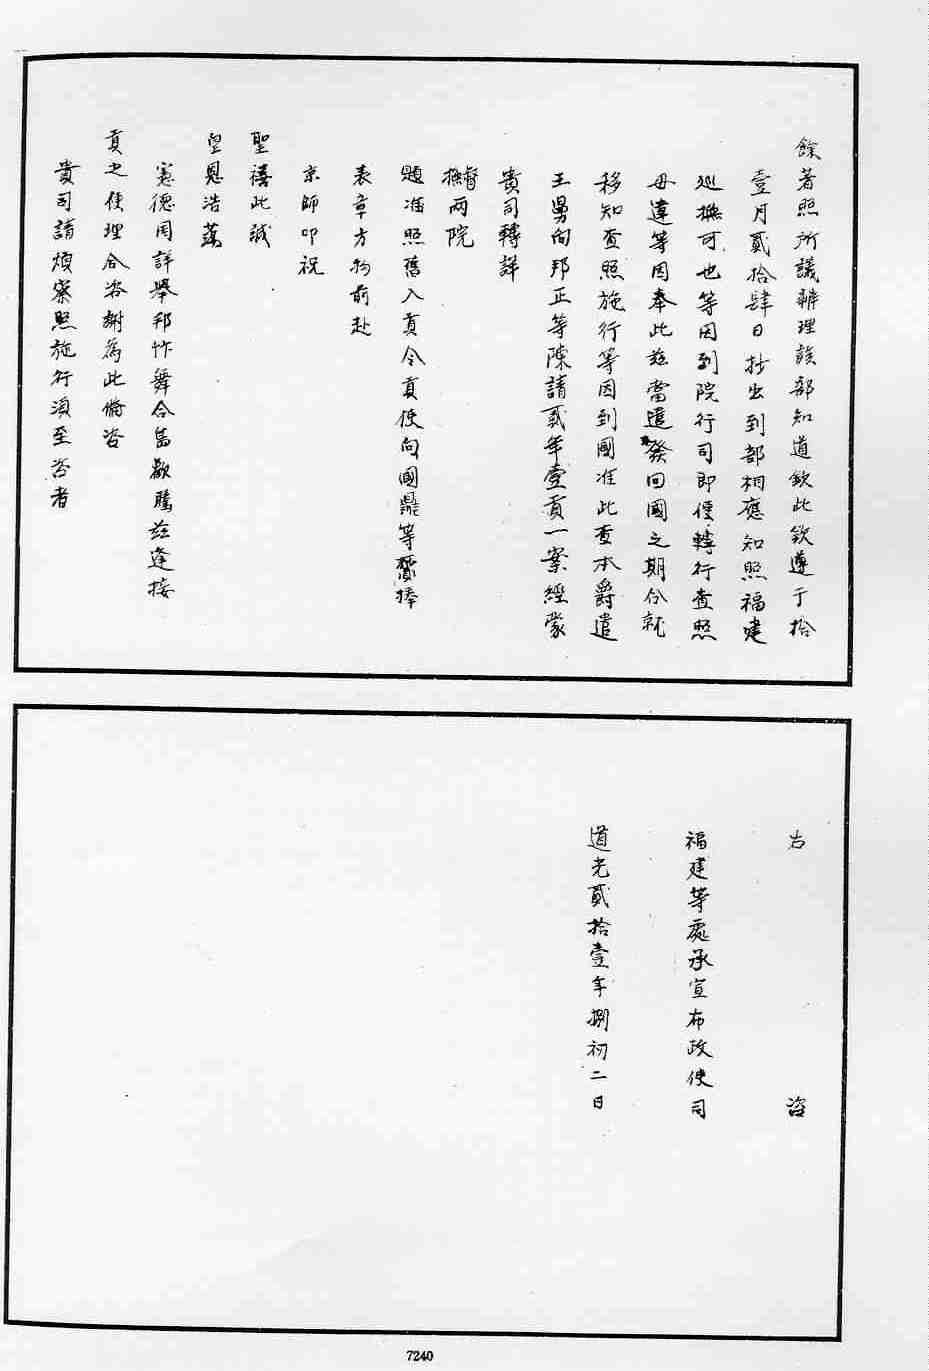 餘著照所議辦理該部知道欽此欽遵于拾
壹月貳拾肆日抄出到部相應知照福建
廵撫可也等因到院行司即便轉行查照
毋違等因奉此茲當遣發回國之期合就
移知查照施行等因到國准此查本爵遣
王舅向邦正等陳請貳年壹貢一案經蒙
貴司轉詳
督撫兩院
題准照舊入貢今貢使向國鼎等賫捧
表章方物前赴
京師叩祝
聖禧此誠
皇恩浩蕩
憲德周詳舉邦忭舞合島歡騰茲逢接
貢之使理合咨謝為此備咨
貴司請煩察照施行須至咨者
右咨
福建等處承宣布政使司
道光貳拾壹年捌初二日
7240